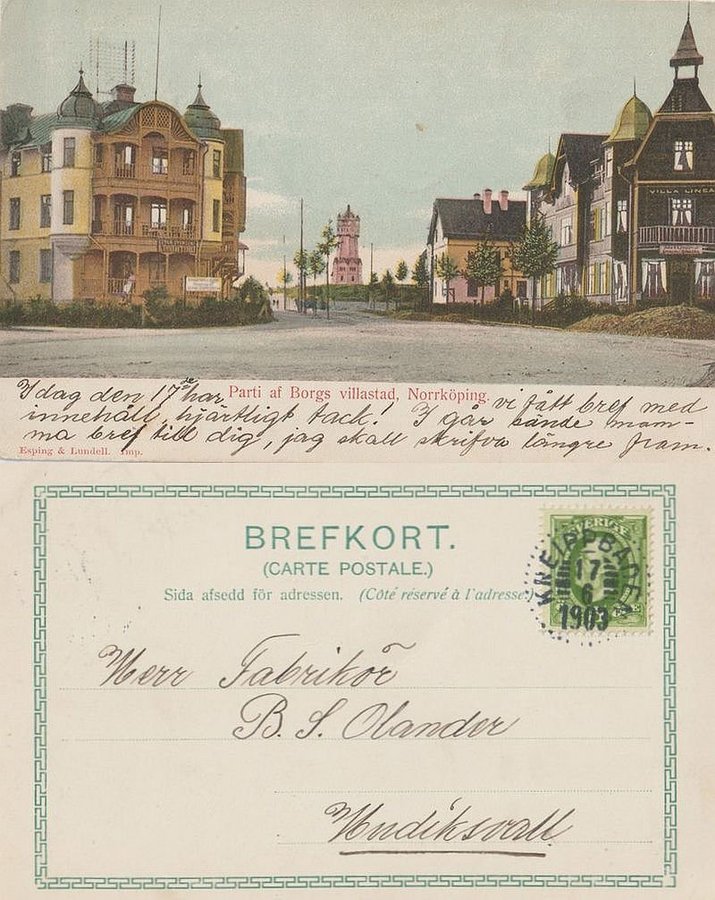 VILLA LINEA
Idag den 17de har Parti af Borgs villastad, Norrköping. vi fått bref med
innehåll, hjärtligt tack! I går sände mam-
ma bref till dig, jag skall skrifva längre fram.
Esping & Lundell. Imp.
BREFKORT.
(CARTE POSTALE.)
Sida afsedd för adressen. (Côté réservé à l'adresse.)
SVERIGE
KNEIPPBADEN
17
6
1903
Herr Fabrikör
B. S. Olander
Hudiksvall